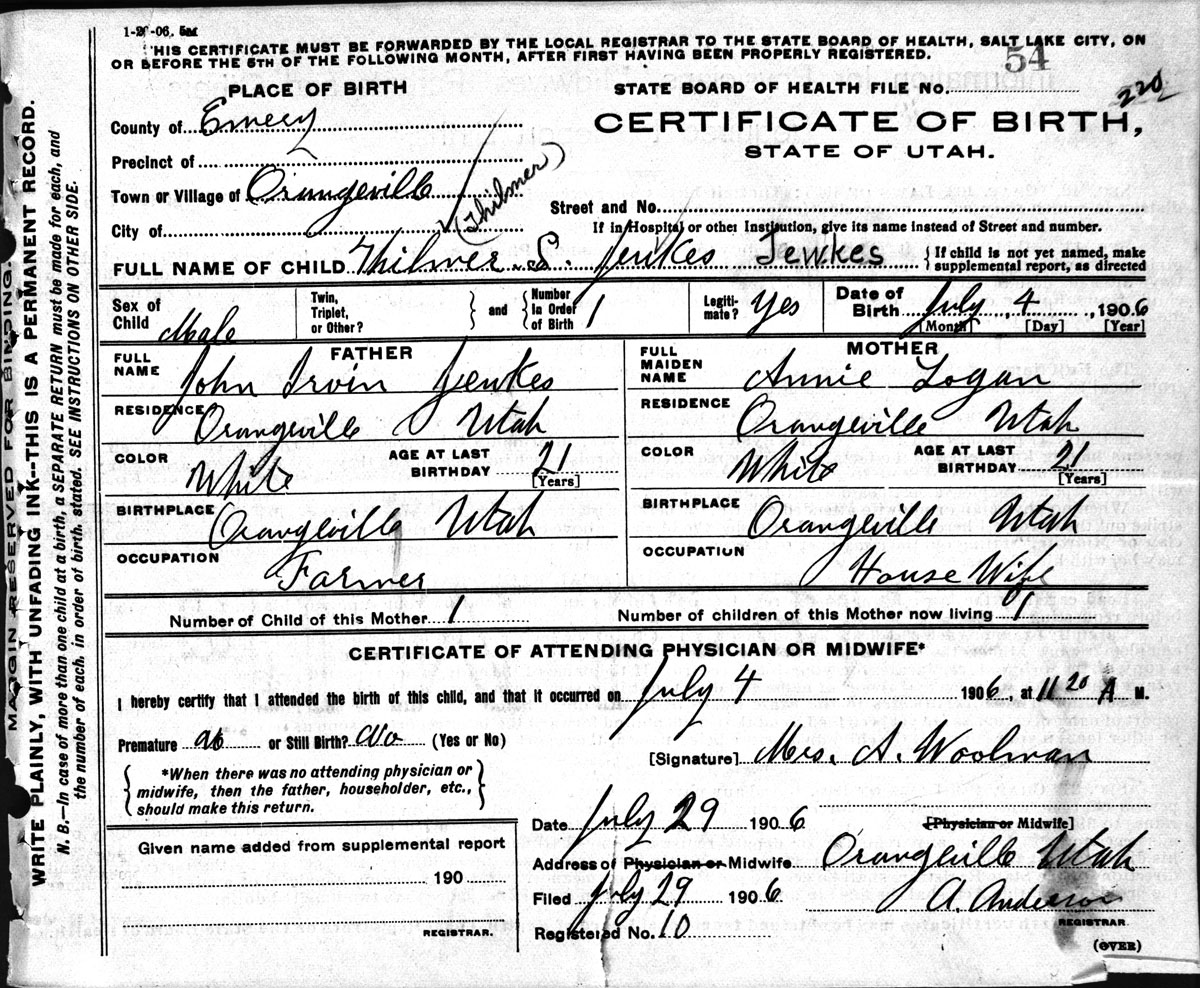 1-2 -06.
THIS CERTIFICATE MUST BE FORWARDED BY THE LOCAL REGISTRAR TO THE STATE BOARD OF HEALTH, SALT LAKE CITY, ON
OR BEFORE THE 5TH OF THE FOLLOWING MONTH, AFTER FIRST HAVING BEEN PROPERLY REGISTERED.
54
PLACE OF BIRTH
STATE BOARD OF HEALTH FILE No.
220
County of Emery
CERTIFICATE OF BIRTH,
STATE OF UTAH.
Precinct of
Town or Village of Orangeville
(Thilmer)
Street and No.
City of
If in Hospital or other Institution, give its name instead of Street and number.
FULL NAME OF CHILD Thilmer S. Jewkes Jewkes
{If child is not yet named, make
supplemental report, as directed
Sex of Child Male
Twin, Triplet, or Other? } and { Number In Order of Birth 1
Legiti-mate? Yes
Date of Birth July 4, 1906
[Month] [Day] [Year]
FATHER
FULL NAME John Irvin Jewkes
RESIDENCE Orangeville Utah
COLOR White AGE AT LAST BIRTHDAY 21 [Years]
BIRTHPLACE Orangeville Utah
OCCUPATION Farmer
MOTHER
FULL MAIDEN NAME Annie Logan
RESIDENCE Orangeville Utah
COLOR White AGE AT LAST BIRTHDAY 21 [Years]
BIRTHPLACE Orangeville Utah
OCCUPATION House Wife
Number of Child of this Mother 1 Number of children of this Mother now living 1
CERTIFICATE OF ATTENDING PHYSICIAN OR MIDWIFE*
I hereby certify that I attended the birth of this child, and that it occurred on July 4 1906, at 11 20 A M.
Premature no or Still Birth? No (Yes or No)
[Signature] Mrs. A. Woolman
{*When there was no attending physician or
midwife, then the father, householder, etc.,
should make this return.}
Date July 29 1906
[Physician or Midwife]
Given name added from supplemental report
190
REGISTRAR.
Address of Physician or Midwife Orangeville Utah
Filed July 29 1906
A. Anderson
REGISTRAR.
Registered No. 10
(OVER)
MARGIN RESERVED FOR BINDING.
WRITE PLAINLY, WITH UNFADING INK--THIS IS A PERMANENT RECORD.
N. B.—In case of more than one child at a birth, a SEPARATE RETURN must be made for each, and
the number of each, in order of birth, stated. SEE INSTRUCTIONS ON OTHER SIDE.